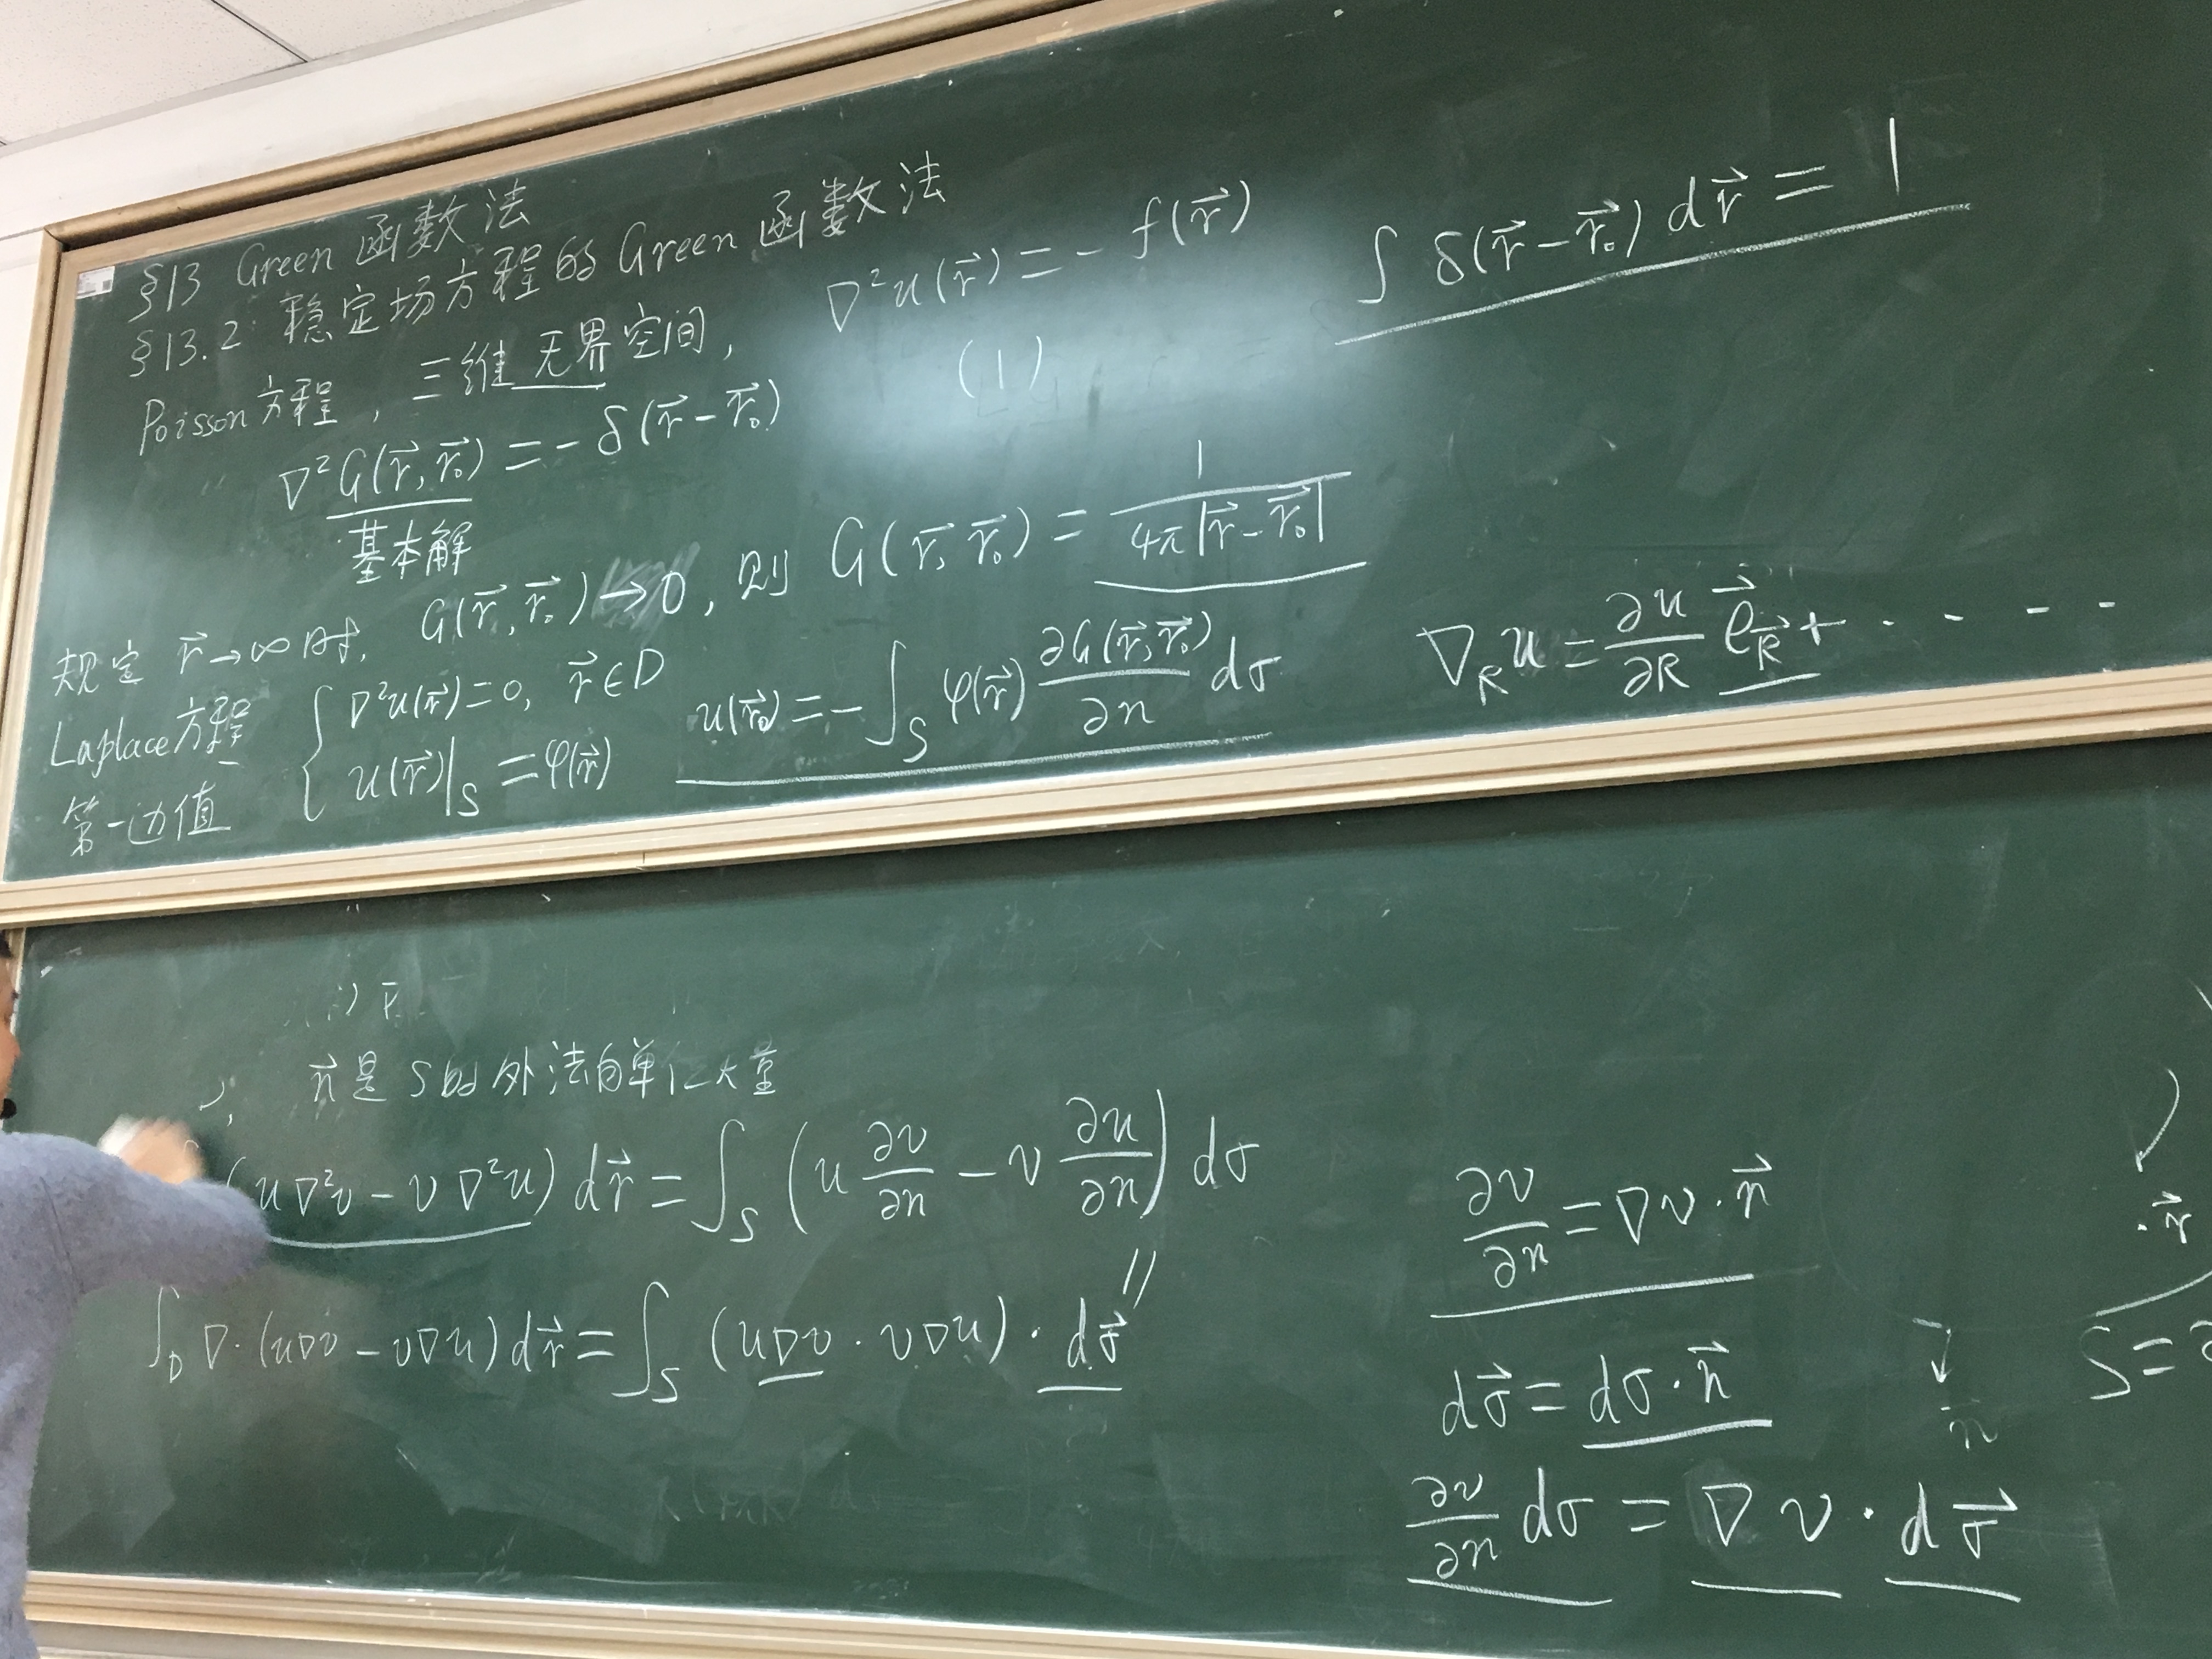 §13 Green 函数法
§13.2 稳定场方程的 Green 函数法
Poisson方程, 三维无界空间, ∇²u(r⃗)=-f(r⃗) (1)
∫ δ(r⃗-r⃗₀) dr⃗ = 1
∇²G(r⃗,r⃗₀)=-δ(r⃗-r⃗₀)
基本解
规定 r⃗→∞时, G(r⃗,r⃗₀)→0, 则 G(r⃗,r⃗₀) = 1/(4π|r⃗-r⃗₀|)
Laplace方程 { ∇²u(r⃗)=0, r⃗∈D
第一边值 u(r⃗)|_S = φ(r⃗)
u(r⃗₀)=-∫_S φ(r⃗) ∂G(r⃗,r⃗₀)/∂n dσ
∇_R u = ∂u/∂R e⃗_R⃗ + · - - -
n⃗是S的外法向单位矢量
(u∇²v - v∇²u) dr⃗ = ∫_S (u ∂v/∂n - v ∂u/∂n) dσ
∫_D ∇·(u∇v - v∇u) dr⃗ = ∫_S (u∇v · v∇u) · dσ⃗
∂v/∂n = ∇v·n⃗
dσ⃗ = dσ·n⃗
∂v/∂n dσ = ∇v · dσ⃗
n⃗
·r⃗
S=